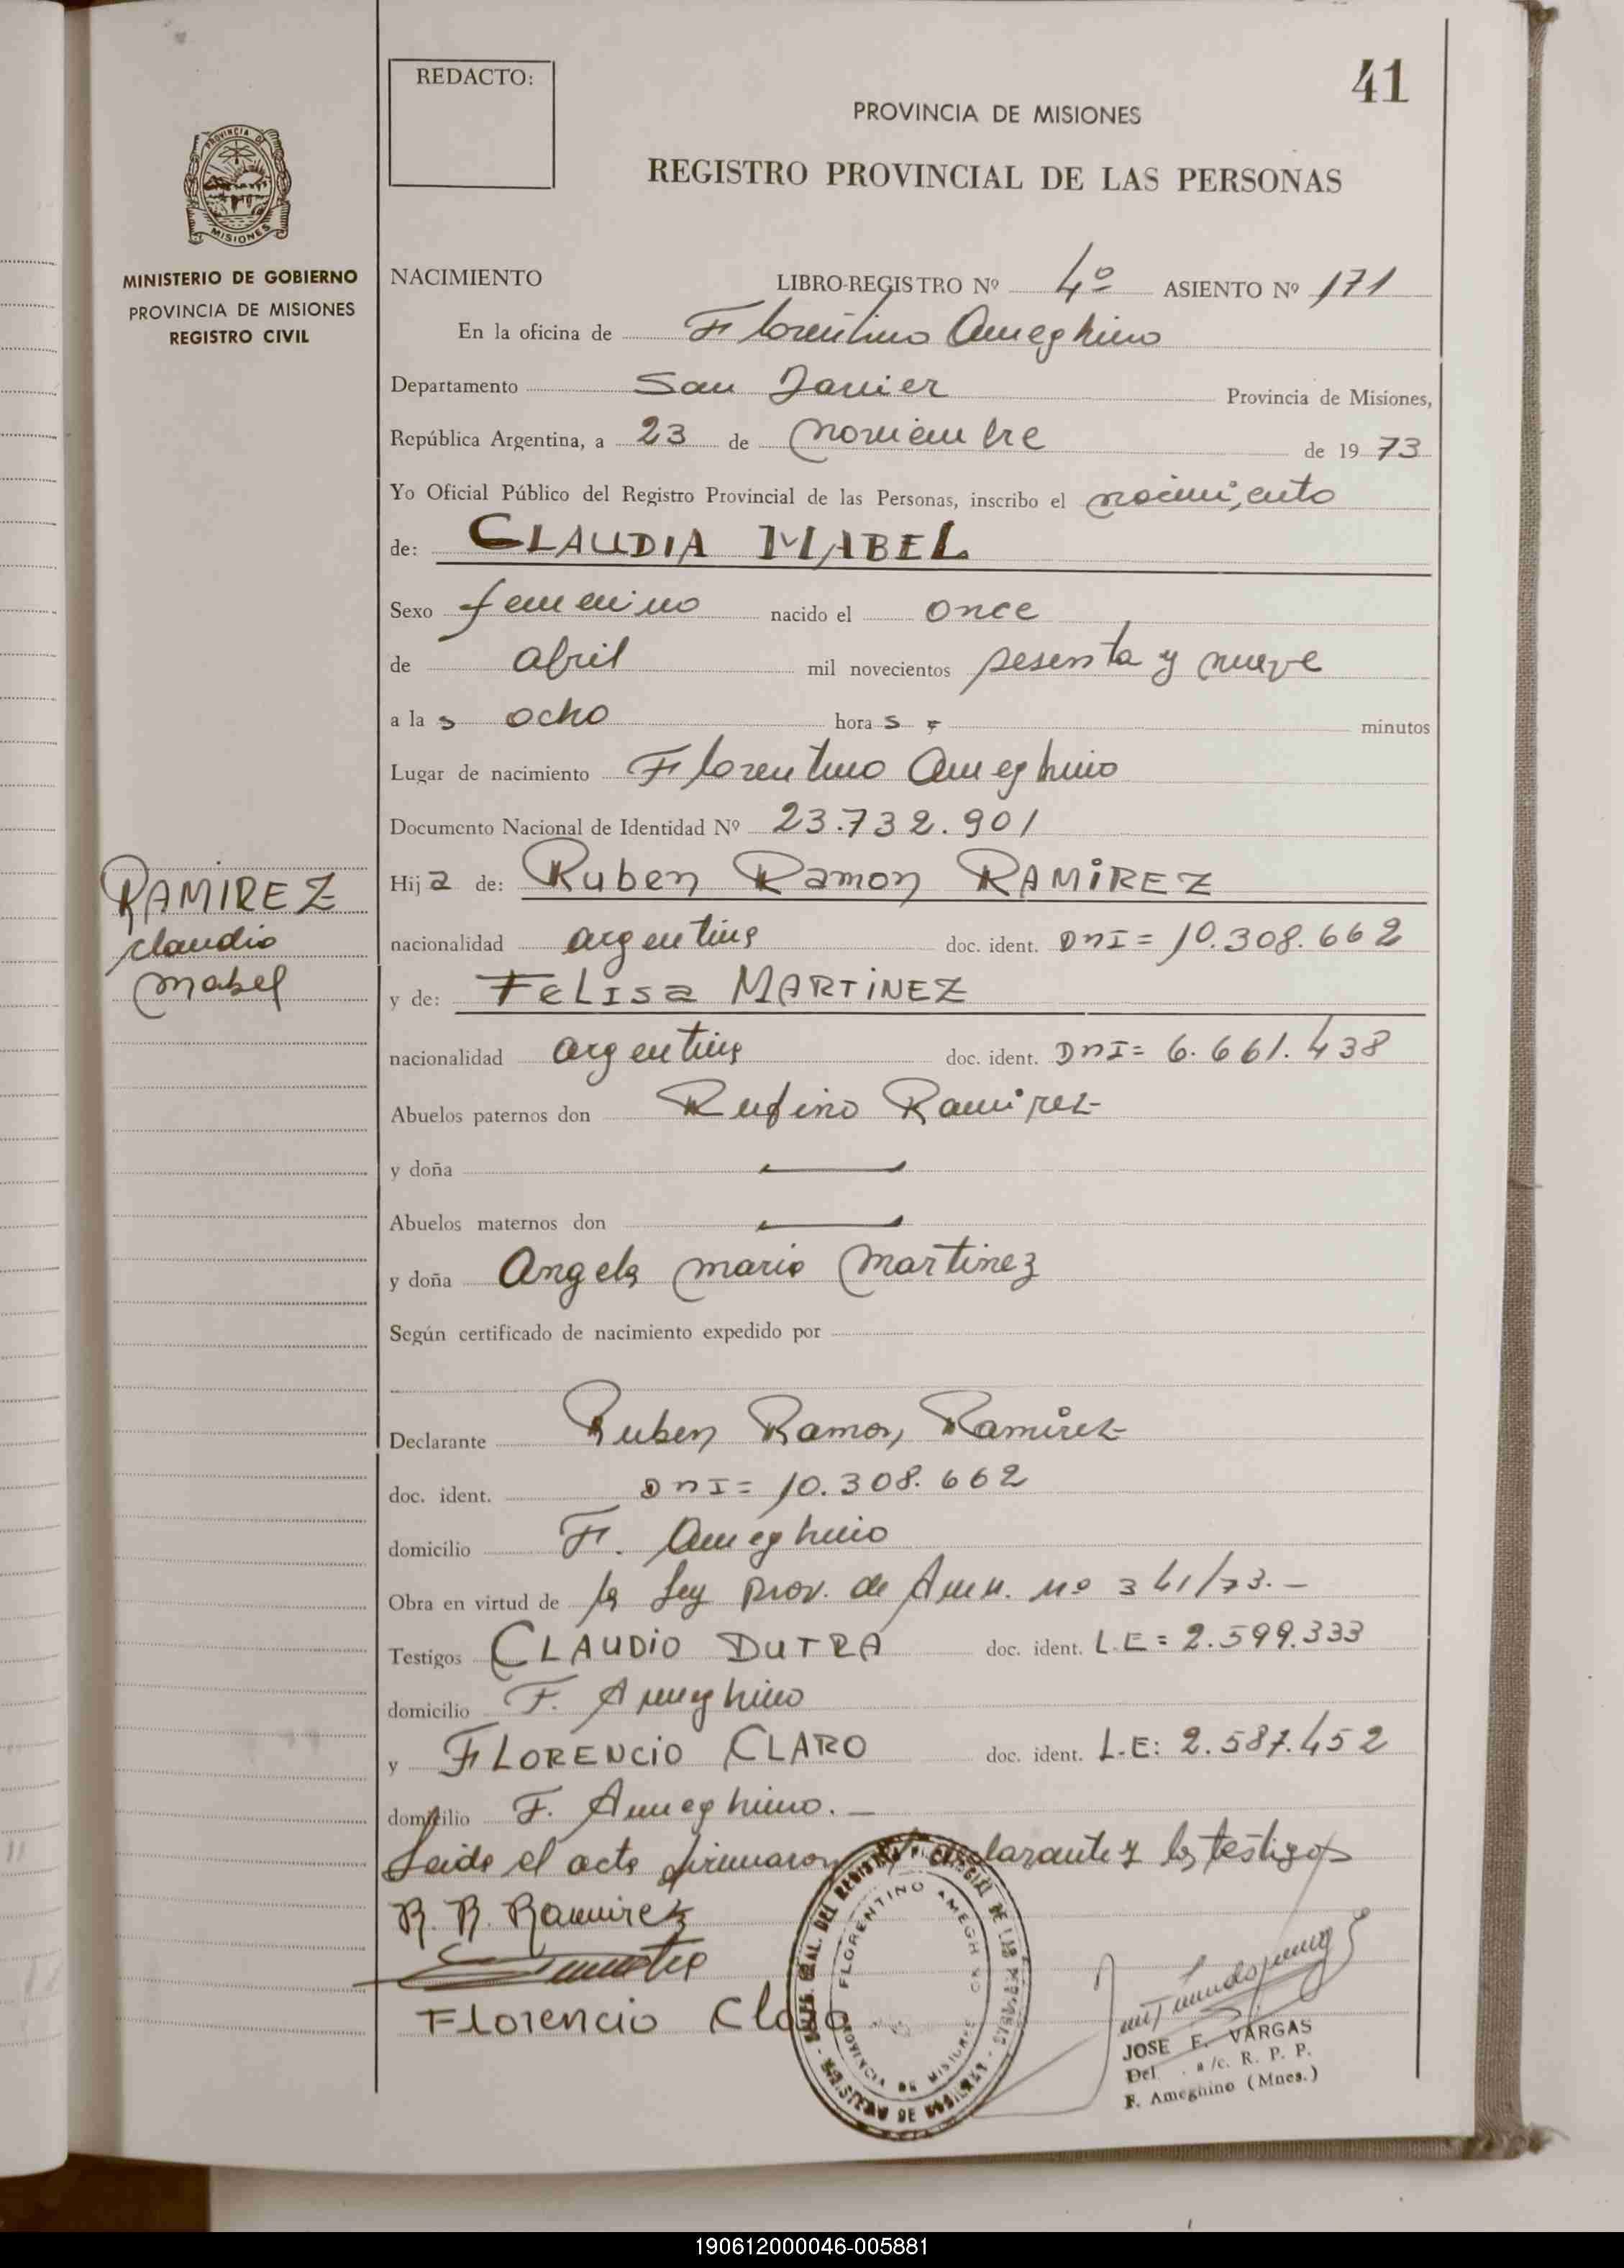 REDACTO:
41
PROVINCIA DE MISIONES
REGISTRO PROVINCIAL DE LAS PERSONAS
PROVINCIA DE
MISIONES
MINISTERIO DE GOBIERNO
PROVINCIA DE MISIONES
REGISTRO CIVIL
NACIMIENTO LIBRO-REGISTRO Nº 4º ASIENTO Nº 171
En la oficina de Florentino Ameghino
Departamento San Javier Provincia de Misiones,
República Argentina, a 23 de noviembre de 1973
Yo Oficial Público del Registro Provincial de las Personas, inscribo el nacimiento
de: CLAUDIA MABEL
Sexo femenino nacido el once
de abril mil novecientos sesenta y nueve
a las ocho horas minutos
Lugar de nacimiento Florentino Ameghino
Documento Nacional de Identidad Nº 23.732.901
RAMIREZ
Claudia
Mabel
Hija de: Ruben Ramon RAMIREZ
nacionalidad argentina doc. ident. DNI= 10.308.662
y de: FELISA MARTINEZ
nacionalidad argentina doc. ident. DNI= 6.661.438
Abuelos paternos don Rufino Ramirez
y doña —
Abuelos maternos don —
y doña Angela Maria Martinez
Según certificado de nacimiento expedido por
Declarante Ruben Ramon Ramirez
doc. ident. DNI= 10.308.662
domicilio F. Ameghino
Obra en virtud de la Ley Prov. de Amn. nº 341/73.-
Testigos CLAUDIO DUTRA doc. ident. L.E= 2.599.333
domicilio F. Ameghino
y FLORENCIO CLARO doc. ident. L.E: 2.587.452
domicilio F. Ameghino.-
Leida el acta firmaron el declarante y los testigos
R. R. Ramirez
Florencio Claro
FLORENTINO AMEGHINO
PROVINCIA DE MISIONES
JOSE F. VARGAS
Del. a/c. R. P. P.
F. Ameghino (Mnes.)
190612000046-005881